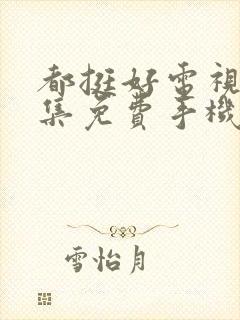 都挺好電視
集免費手機
雪怡月